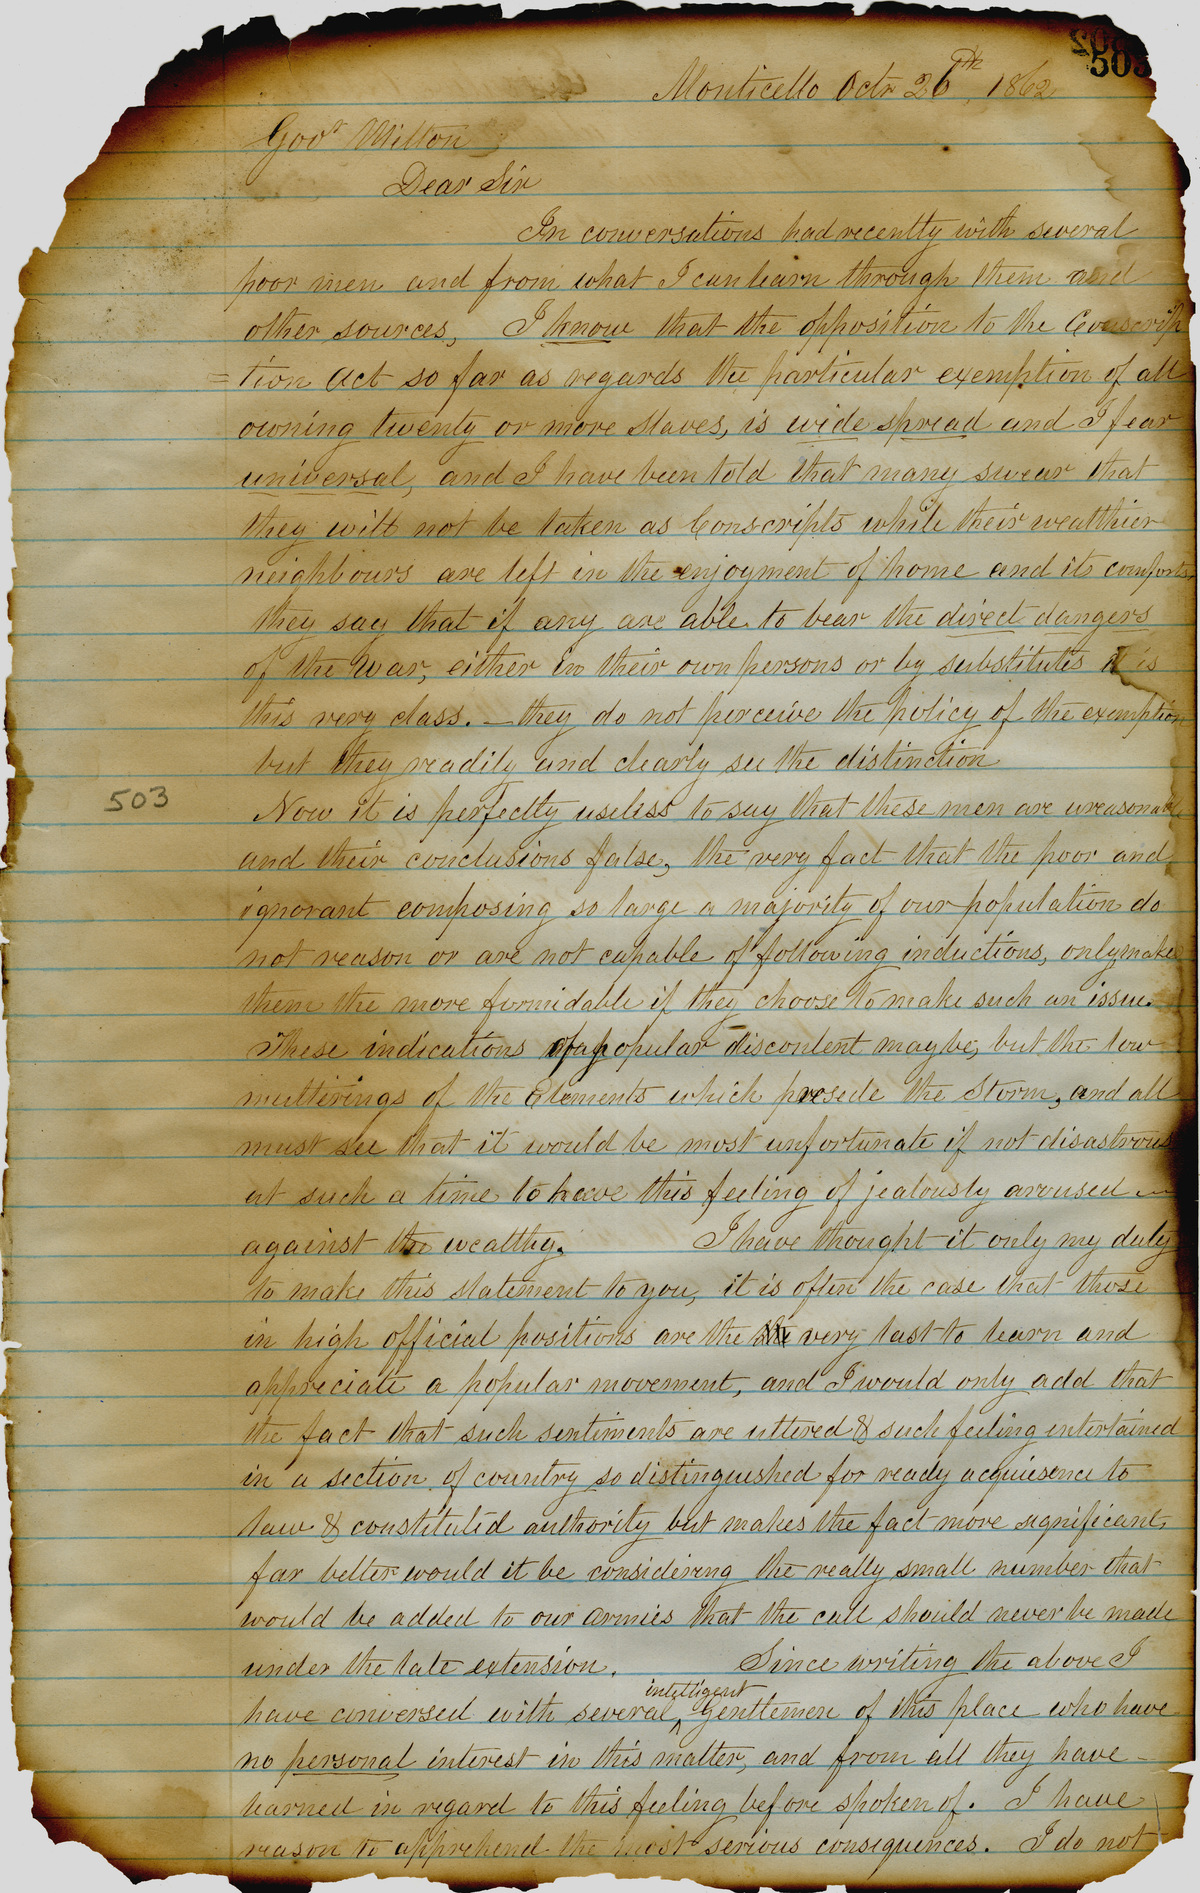 503
Monticello Octr 26th, 1862
Govr Milton
Dear Sir
In conversations had recently with several
poor men and from what I can learn through them and
other sources, I know that the opposition to the Conscrip
=tion Act so far as regards the particular exemption of all
owning twenty or more slaves, is wide spread and I fear
universal, and I have been told that many swear that
they will not be taken as Conscripts while their wealthier
neighbours are left in the enjoyment of home and its comforts,
they say that if any are able to bear the direct dangers
of the War, either in their own persons or by substitutes it is
this very class. — they do not perceive the policy of the exemption
but they readily and clearly see the distinction
503
Now it is perfectly useless to say that these men are ureasonable
and their conclusions false, the very fact that the poor and
ignorant composing so large a majority of our population do
not reason or are not capable of following inductions, only makes
them the more formidable if they choose to make such an issue.
These indications of a popular discontent may be, but the low
mutterings of the Elements which presede the Storm, and all
must see that it would be most unfortunate if not disastrous
at such a time to have this feeling of jealously aroused —
against the wealthy. I have thought it only my duty
to make this statement to you, it is often the case that those
in high official positions are the very last to learn and
appreciate a popular movement, and I would only add that
the fact that such sentiments are uttered & such feeling entertained
in a section of country so distinguished for ready acquiesence to
law & constituted authority but makes the fact more significant,
far better would it be considering the really small number that
would be added to our armies that the call should never be made
under the late extension. Since writing the above I
have conversed with several intelligent gentlemen of this place who have
no personal interest in this matter, and from all they have —
learned in regard to this feeling before spoken of. I have
reason to apprehend the most serious consequences. I do not